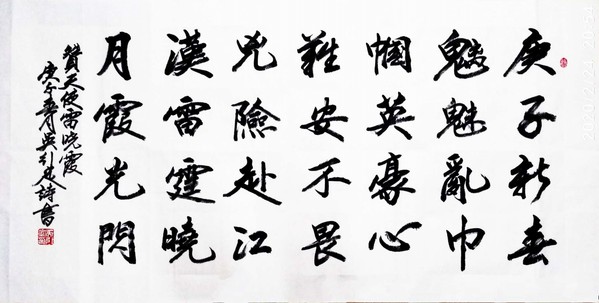 庚子新春
魑魅亂巾
幗英豪心
難安不畏
兇險赴江
漢雷霆曉
月霞光閃
贊天使雷晓霞
庚子春吳引詩書